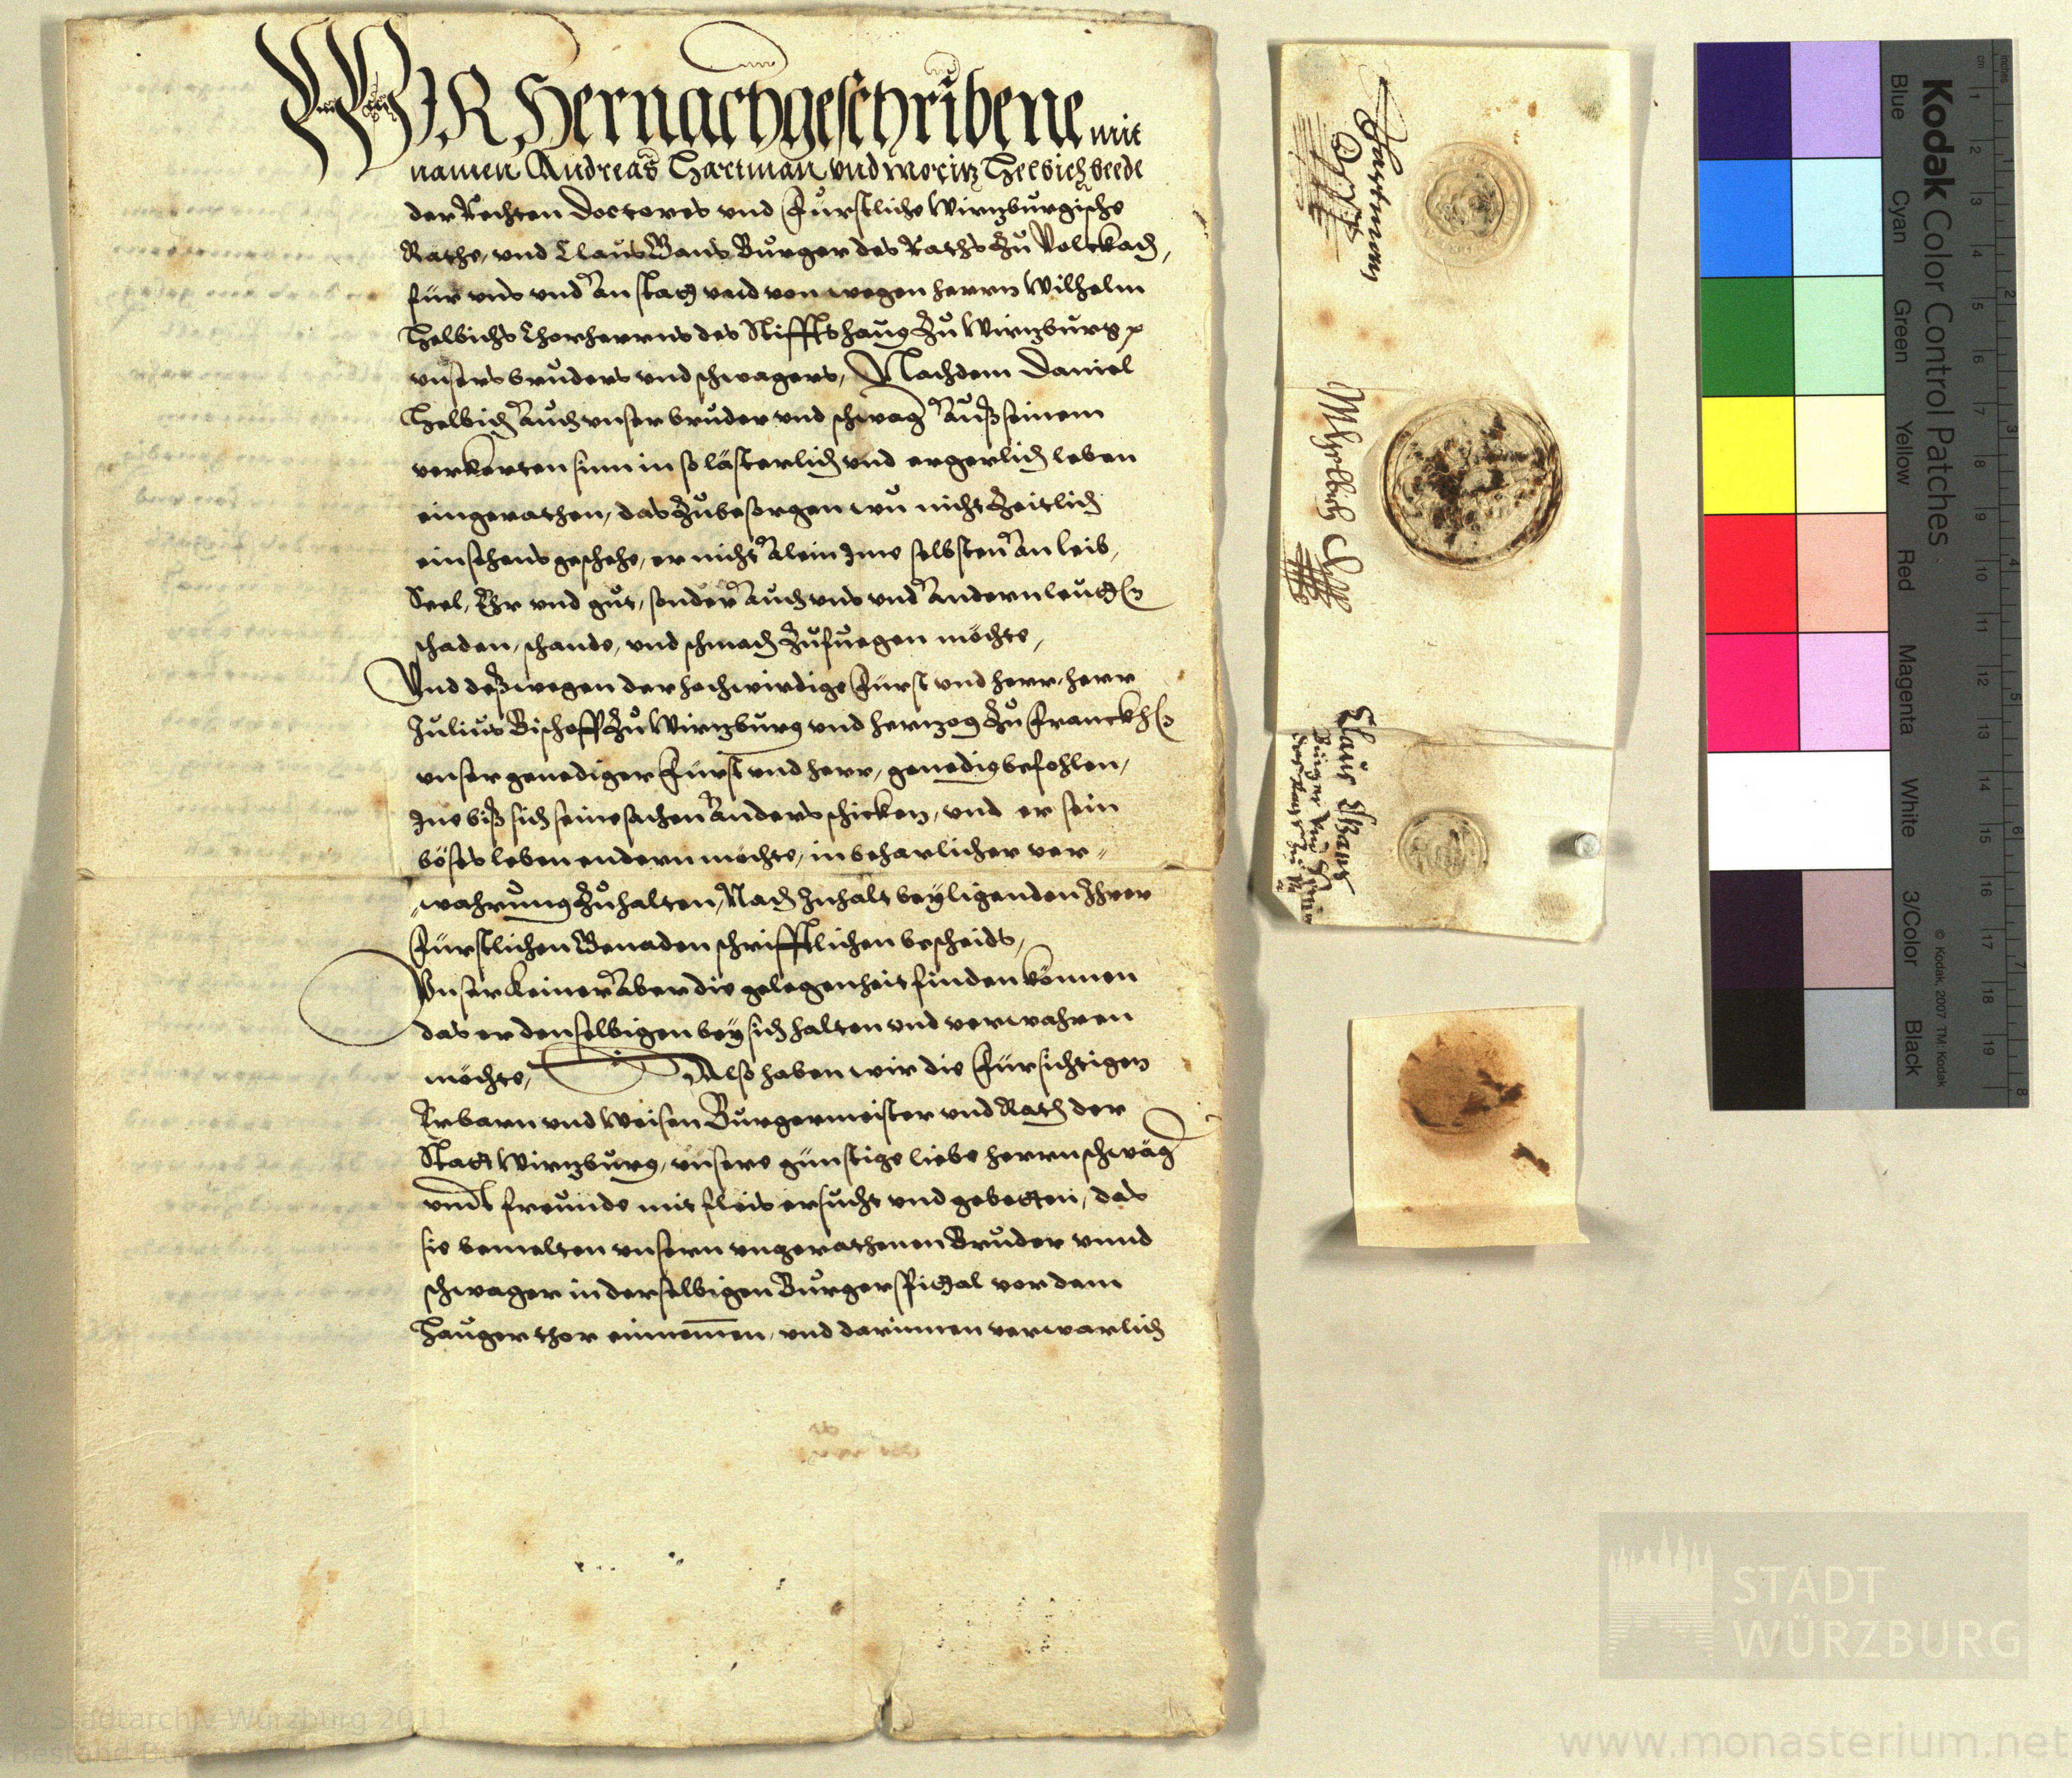 WIR Hernachgeschribene mit
namen Andreas Hartman vnd Moritz Helbich beede
der Rechten Doctores vnd Fürstliche Wirtzburgische
Räthe, vnd Claus Gans Burger des Raths zu Volckach,
für vns vnd an statt vnd von wegen herrn Wilhelm
Helbichs Chorherrns des Stiffts Haug zu Wirtzburg
vnsers bruders vnd schwagers, Nachdem Daniel
Helbich auch vnser bruder vnd schwag auß seinem
verkerten sinn in so lästerlich vnd ergerlich leben
eingerathen, das zubesorgen wu nicht zeitlich
einsehens geschehe, er nicht alein Ime selbsten an leib,
Seel, Ehr vnd gut, sonder auch vns vnd andern leutt
schaden, schande, vnd schmach zufuegen möchte,
Vnd deßwegen der hochwirdige Fürst vnd herr, herr
Julius Bischoff zu Wirtzburg vnd hertzog zu Franckh
vnser genediger Fürst vnd herr, genedig befohlen,
Ine biß sich seine sachen anders schicken, vnd er sein
böses leben endern möchte, in beharlicher ver-
wahrung zuhalten, Nach Inhalt beyligenden Ihrer
Fürstlichen Genaden schrifftlichen bescheids,
Vnser keiner aber die gelegenheit finden können
das er denselbigen bey sich halten vnd verwahren
möchte, Also haben wir die Fürsichtigen
Erbarn vnd Weisen Burgermeister vnd Rath der
Statt Wirtzburg, vnsere günstige liebe herrn schwäg
vnd freunde mit fleis ersucht vnd gebetten, das
sie bemelten vnsern vngerathenen Bruder vnnd
schwager in derselbigen Burgerspittal vor dem
Hauger thor einnemen, vnd darinnen verwarlich
Hartman
Dr
MHelbich
Claus Gans
Burger vnd
Kodak Color Control Patches
Blue Cyan Green Yellow Red Magenta White 3/Color Black
© Kodak, 2007 TM: Kodak
inches 1 2 3 4 5 6 7 8
cm 1 2 3 4 5 6 7 8 9 10 11 12 13 14 15 16 17 18 19
STADT
WÜRZBURG
© Stadtarchiv Würzburg 2011
Bestand
www.monasterium.net